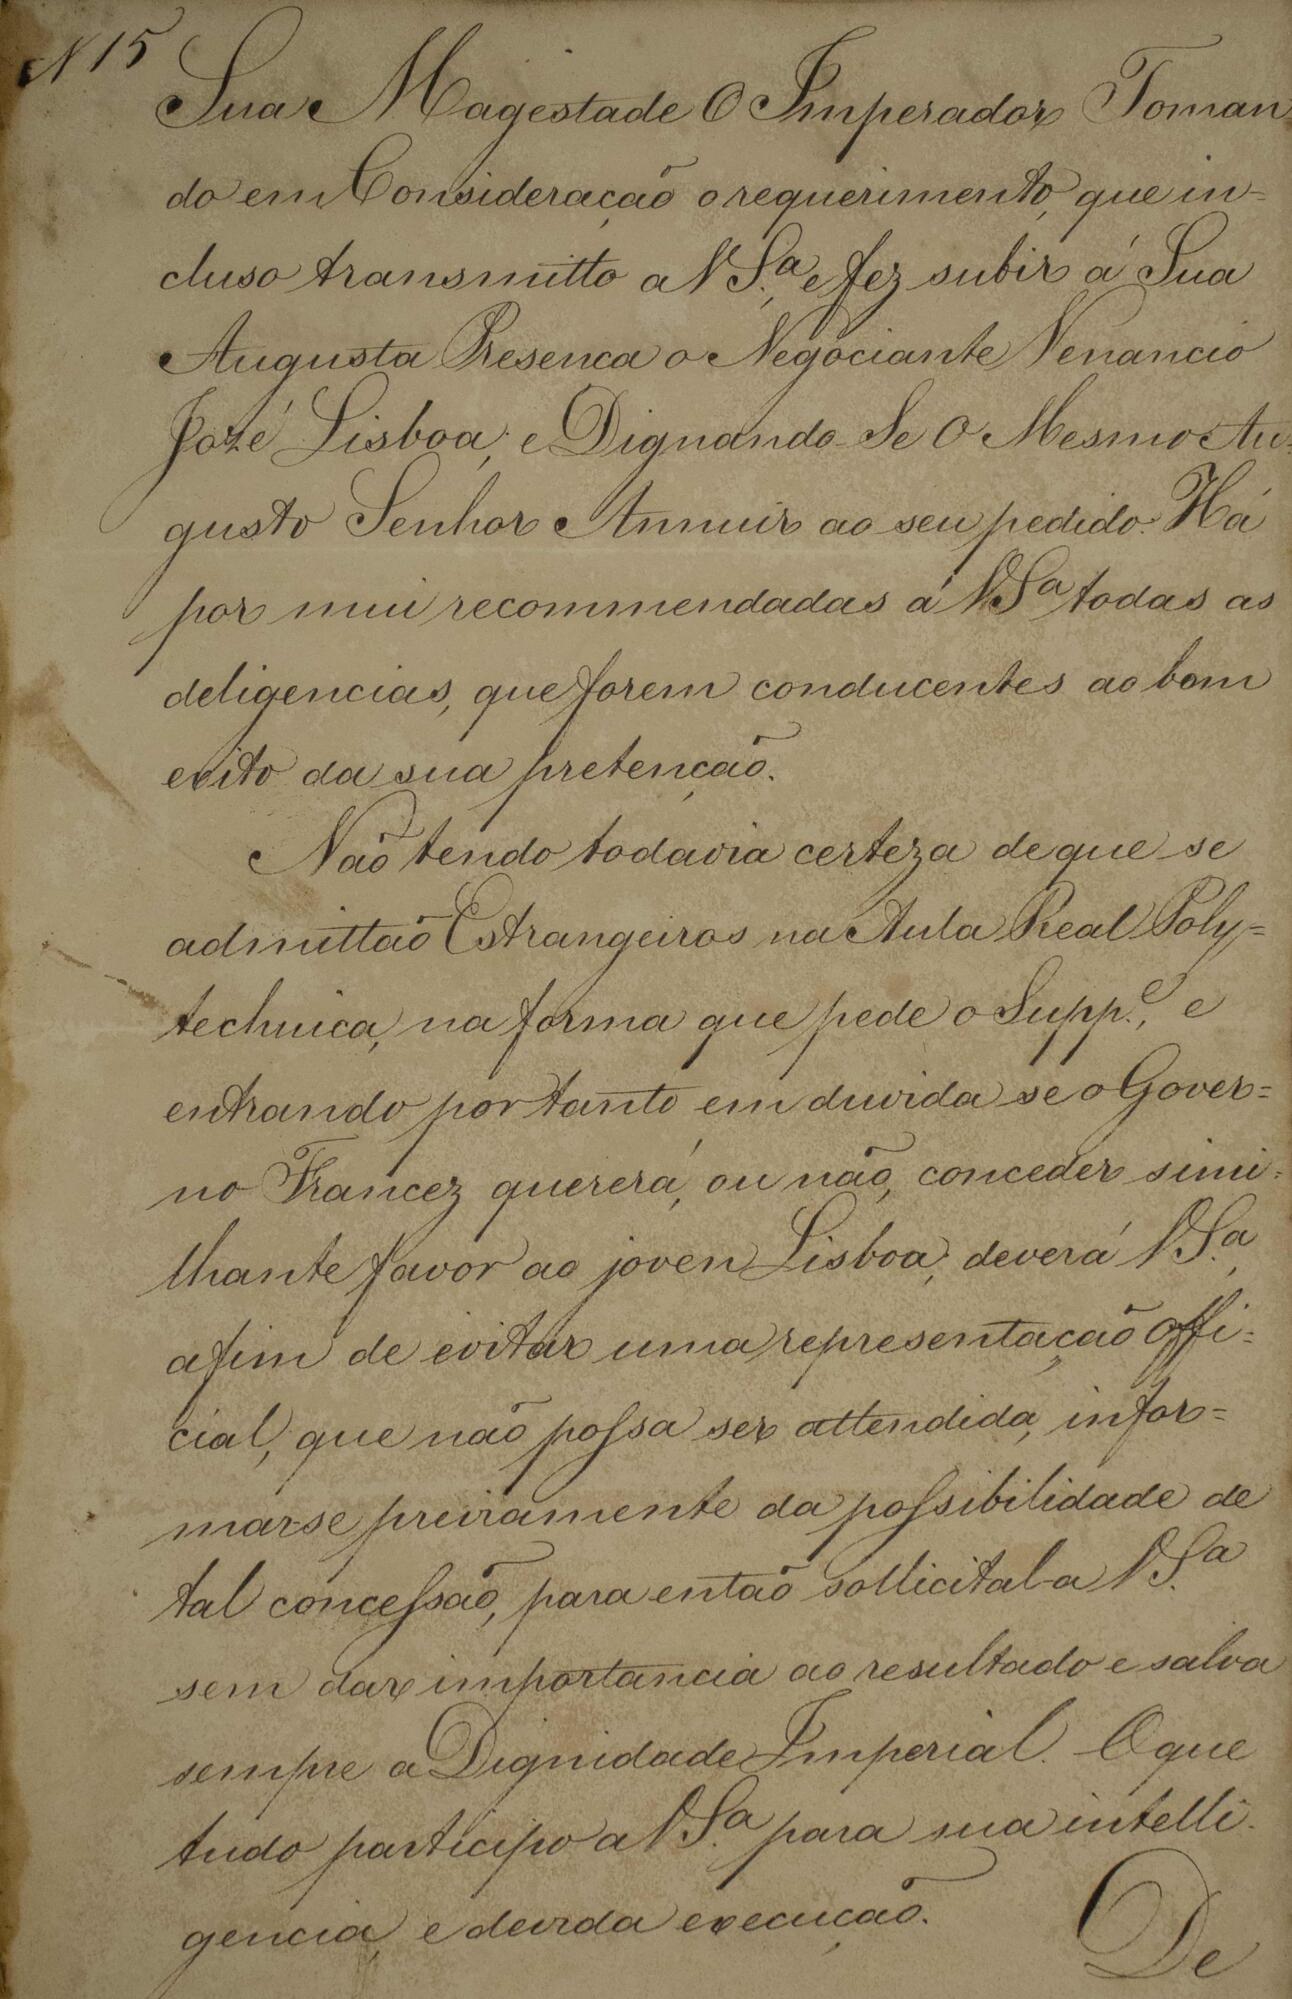 N 15
Sua Magestade O Imperador Toman
do em Consideração o requerimento, que in=
cluso transmitto a V S.ª, e fez subir á Sua
Augusta Presenca o Negociante Venancio
Jozé Lisboa; e Dignando-Se O Mesmo Au=
gusto Senhor Annuir ao seu pedido. Há
por mui recommendadas á V Sª todas as
deligencias, que forem conducentes ao bom
exito da sua pretenção.
Não tendo todavia certeza de que se
admittão Estrangeiros na Aula Real Poly=
technica, na forma que pede o Supp.e, e
entrando portanto em duvida se o Gover=
no Francez quererá, ou não, conceder simi=
lhante favor ao joven Lisboa; deverá V S.ª,
afim de evitar uma representação Offi=
cial, que não possa ser attendida, infor=
mar-se previamente da possibilidade de
tal concessão, para então sollicital-a V S.ª
sem dar importancia ao resultado e salva
sempre a Dignidade Imperial. O que
tudo participo a V S.ª para sua intelli-
gencia, e devida execução.
De